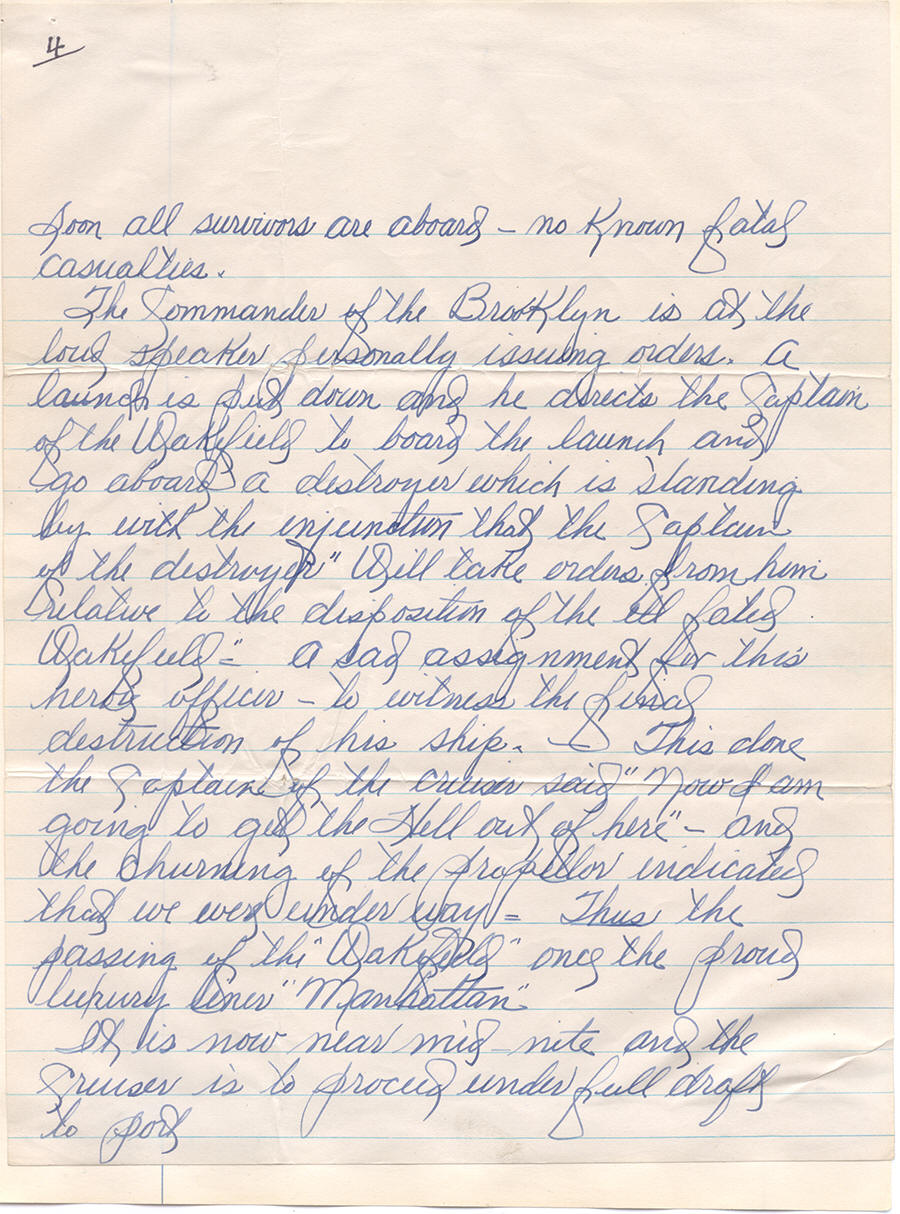 4
Soon all survivors are aboard – no Known fatal
casualties.
The Commander of the Brooklyn is at the
loud speaker personally issuing orders. A
launch is put down and he directs the Captain
of the Wakefield to board the launch and
go aboard a destroyer which is standing
by with the injunction that the Captain
of the destroyer "Will take orders from him
relative to the disposition of the ill fated
Wakefield" – A sad assignment for this
heroic officer – to witness the final
destruction of his ship. — This done
the Captain of the cruiser said "Now I am
going to get the Hell out of here" – and
the churning of the propellor indicated
that we were under way = Thus the
passing of the "Wakefield" once the proud
luxury liner "Manhattan".
It is now near mid-nite and the
Cruiser is to proceed under full draft
to port